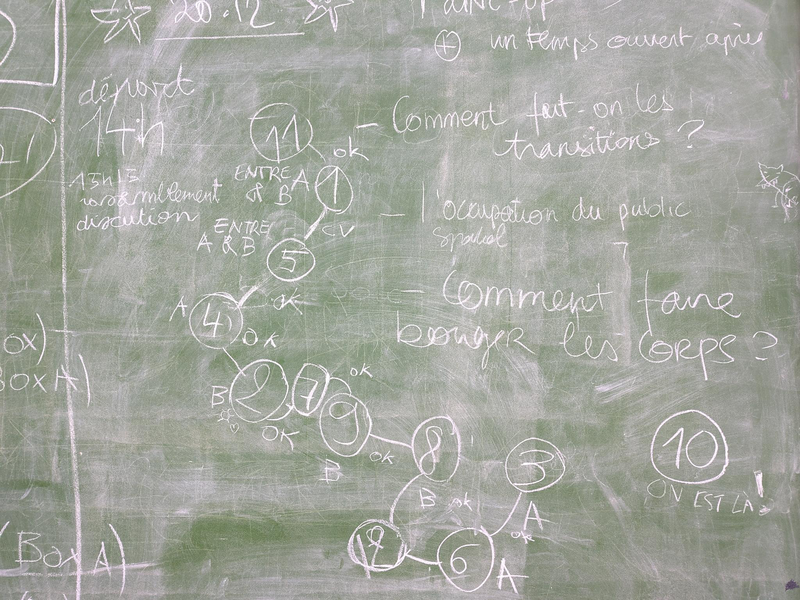 20.12
⊕ un temps ouvert après
départ
14h
11
- Comment fait-on les
transitions ?
ok
15h15
rassemblement
discution
ENTRE A
& B
1
- l'occupation du public
spatial
ENTRE
A & B
CV
5
- Comment faire
bouger les corps ?
A
4
ok
OK
OX)
BOX A)
B
2
7
ok
OK
9
B
ok
8
B
ok
3
A
ok
10
ON EST LÀ !
12
6
A
(Box A)